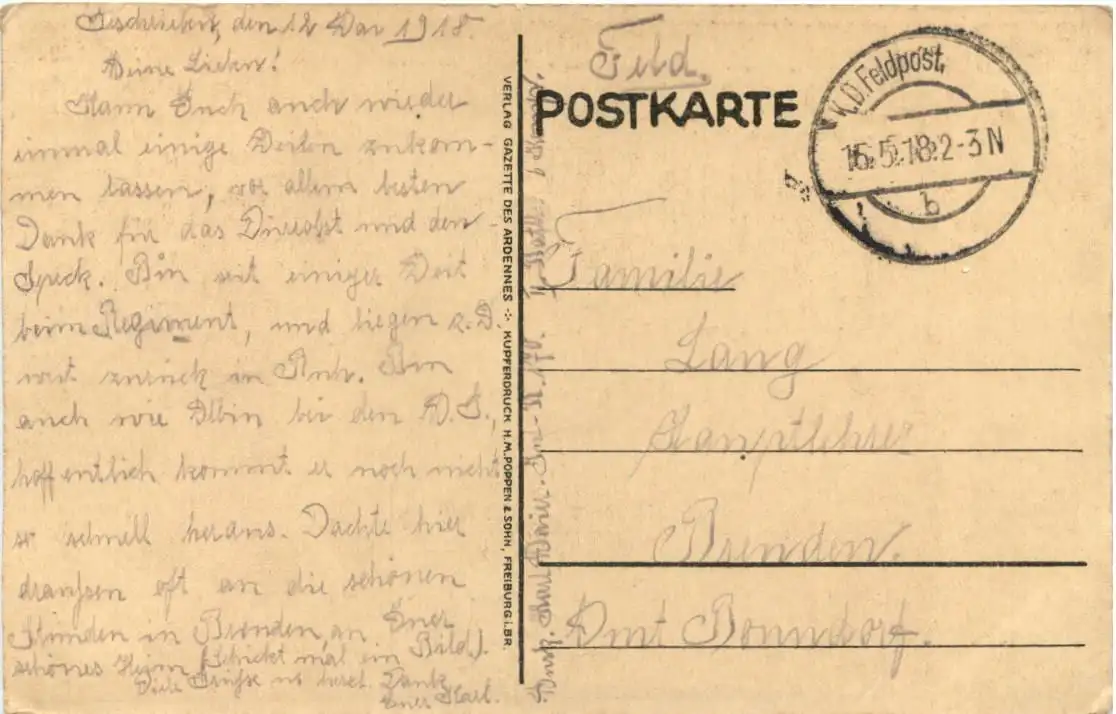 Geschrieben, den 12 Mai 1918.
Meine Lieben!
Kann Euch auch wieder
einmal einige Zeilen zukom-
men lassen, vor allem besten
Dank für das Dürrobst und den
Speck. Bin seit einiger Zeit
beim Regiment, und liegen z. Z.
weit zurück in Ruh. Bin
auch wie Albin bei den
hoffentlich kommt er noch nicht
so schnell heraus. Dachte hier
draußen oft an die schönen
Stunden in Brenden, an Euer
schönes Heim (Schickt mal ein Bild).
Viele Grüße u. herzl. Dank
Euer Karl.
VERLAG GAZETTE DES ARDENNES ⊹ KUPFERDRUCK H.M.POPPEN & SOHN, FREIBURG i.BR.
Feld.
POSTKARTE
K.D.Feldpost.
15.5.18.2-3N
b
Familie
Lang
Hauptlehrer
Brenden.
Amt Bonndorf.